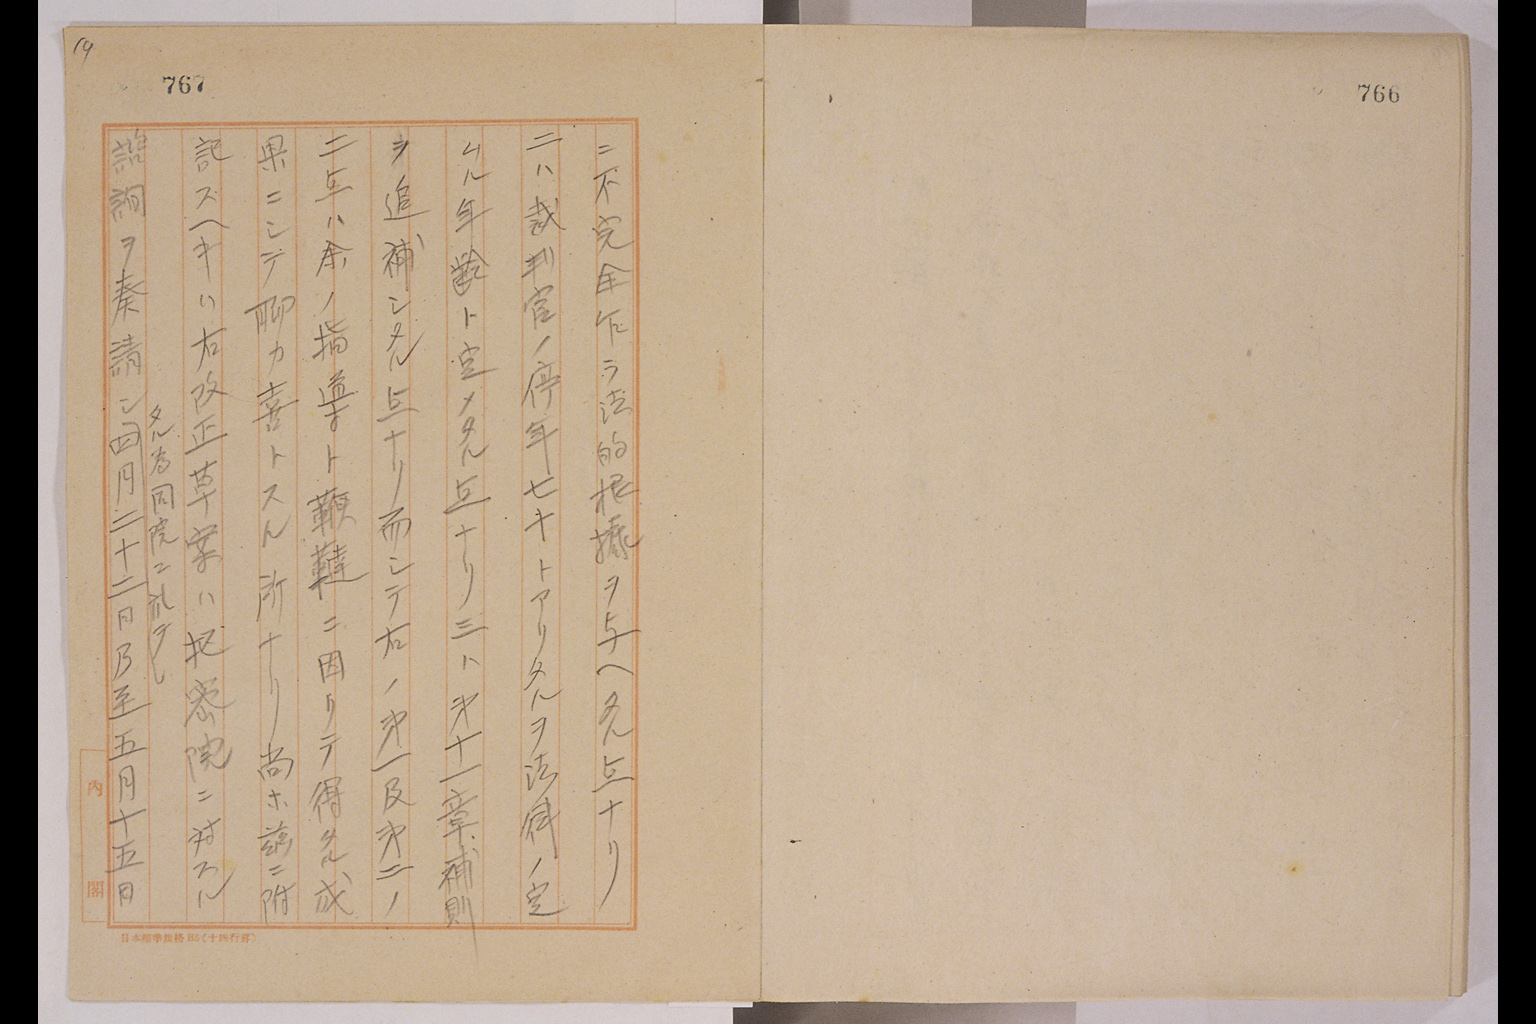 766
19
767
ニ不完全乍ラ法的根拠ヲ与ヘタル点ナリ
二ハ裁判官ノ停年七十トアリタルヲ法律ノ定
ムル年齢ト定メタル点ナリ三ハ第十一章補則
ヲ追補シタル点ナリ而シテ右ノ第一及第二ノ
二点ハ余ノ指導ト鞭韃ニ因リテ得タル成
果ニシテ聊カ喜トスル所ナリ尚ホ茲ニ附
記スヘキハ右改正草案ハ枢密院ニ対スル
諮詢ヲ奏請シ四月二十二日乃至五月十五日
タル為同院ニ於テハ
内閣
日本標準規格B5(十四行罫)